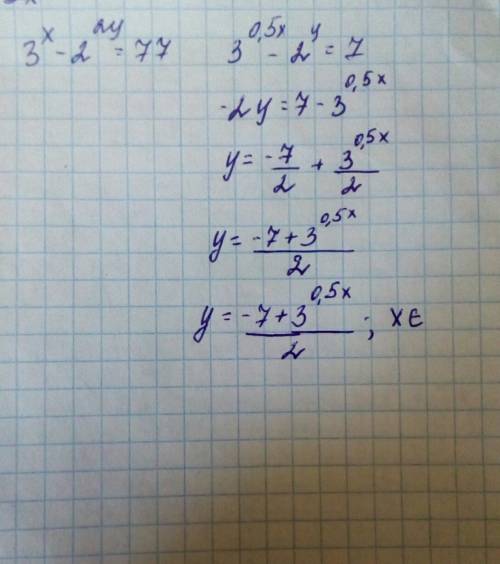 3^x - 2^{2y} = 77    3^{0,5x} - 2^y = 7
-2y = 7 - 3^{0,5x}
y = \frac{-7}{2} + \frac{3^{0,5x}}{2}
y = \frac{-7 + 3^{0,5x}}{2}
y = \frac{-7 + 3^{0,5x}}{2} ; x ∈